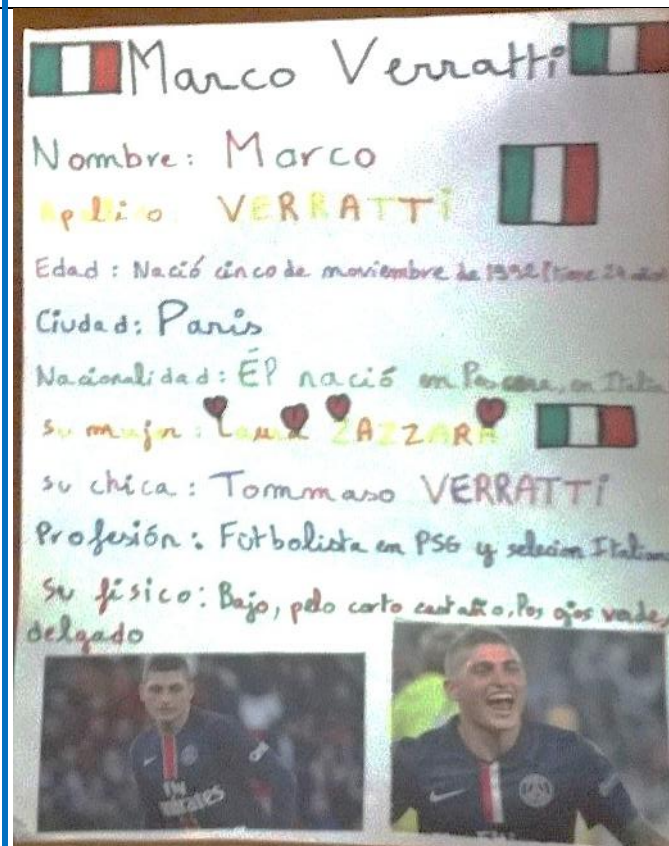 Marco Verratti
Nombre: Marco
VERRATTi
Edad: Nació cinco de noviembre de 1992 (tiene 24 años
Ciudad: Paris
Nacionalidad: Él nació en Pescara, en Italia
su mujer: Laura ZAZZARA
su chica: Tommaso VERRATTi
Profesión: Futbolista en PSG y selecion Italiana
Su fisico: Bajo, pelo corto castaño, los ojos verdes,
delgado
Fly
Emirates